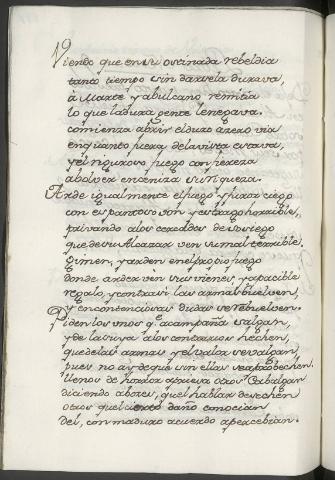 19
Viendo que en su ostinada rebeldia
tanto tiempo sin darsela durava,
à Marte y à bulcano remitia
lo que la dura gente le negava.
comienza abrir el duro azero via
en quanto fuera de la vista estava,
y el riguroso fuego con fiereza
a bolver en ceniza su riqueza.
Arde igualmente el fuego y furor ciego
con espantoso son y estrago horrible,
privando a los cercados de sosiego
que de su Alcazar ven su mal terrible.
Gimen, y arden en el propio fuego
donde arder ven sus vienes, y apacible
regalo, y contra si las armas buelven,
y en contenciosas dudas se rebuelven.
Piden los unos q̃ acompaña salgan,
y de la suya a los contrarios hechen,
que de las armas y el valor se valgan,
pues no ay de que sin ellas se aprobechen.
llenos de horror apriesa otros Cabalgan
diciendo a boses, que el hablar desechen
otros que el daño conocian
del, con maduro acuerdo apercebian.